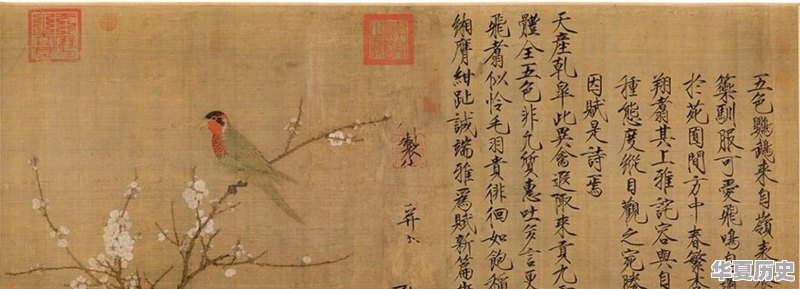 五色鸚鵡來自嶺表
籞馴服可愛飛鳴自
於苑囿間方中春繁
翔翥其上雅詫容與自
種態度縱目觀之宛勝
因賦是詩焉
天產乾皋此異禽遐陬來貢九
體全五色非凡質惠吐多言更
飛翥似憐毛羽貴徘徊如飽稻
緗膺紺趾誠端雅為賦新篇
製
并
华夏历史